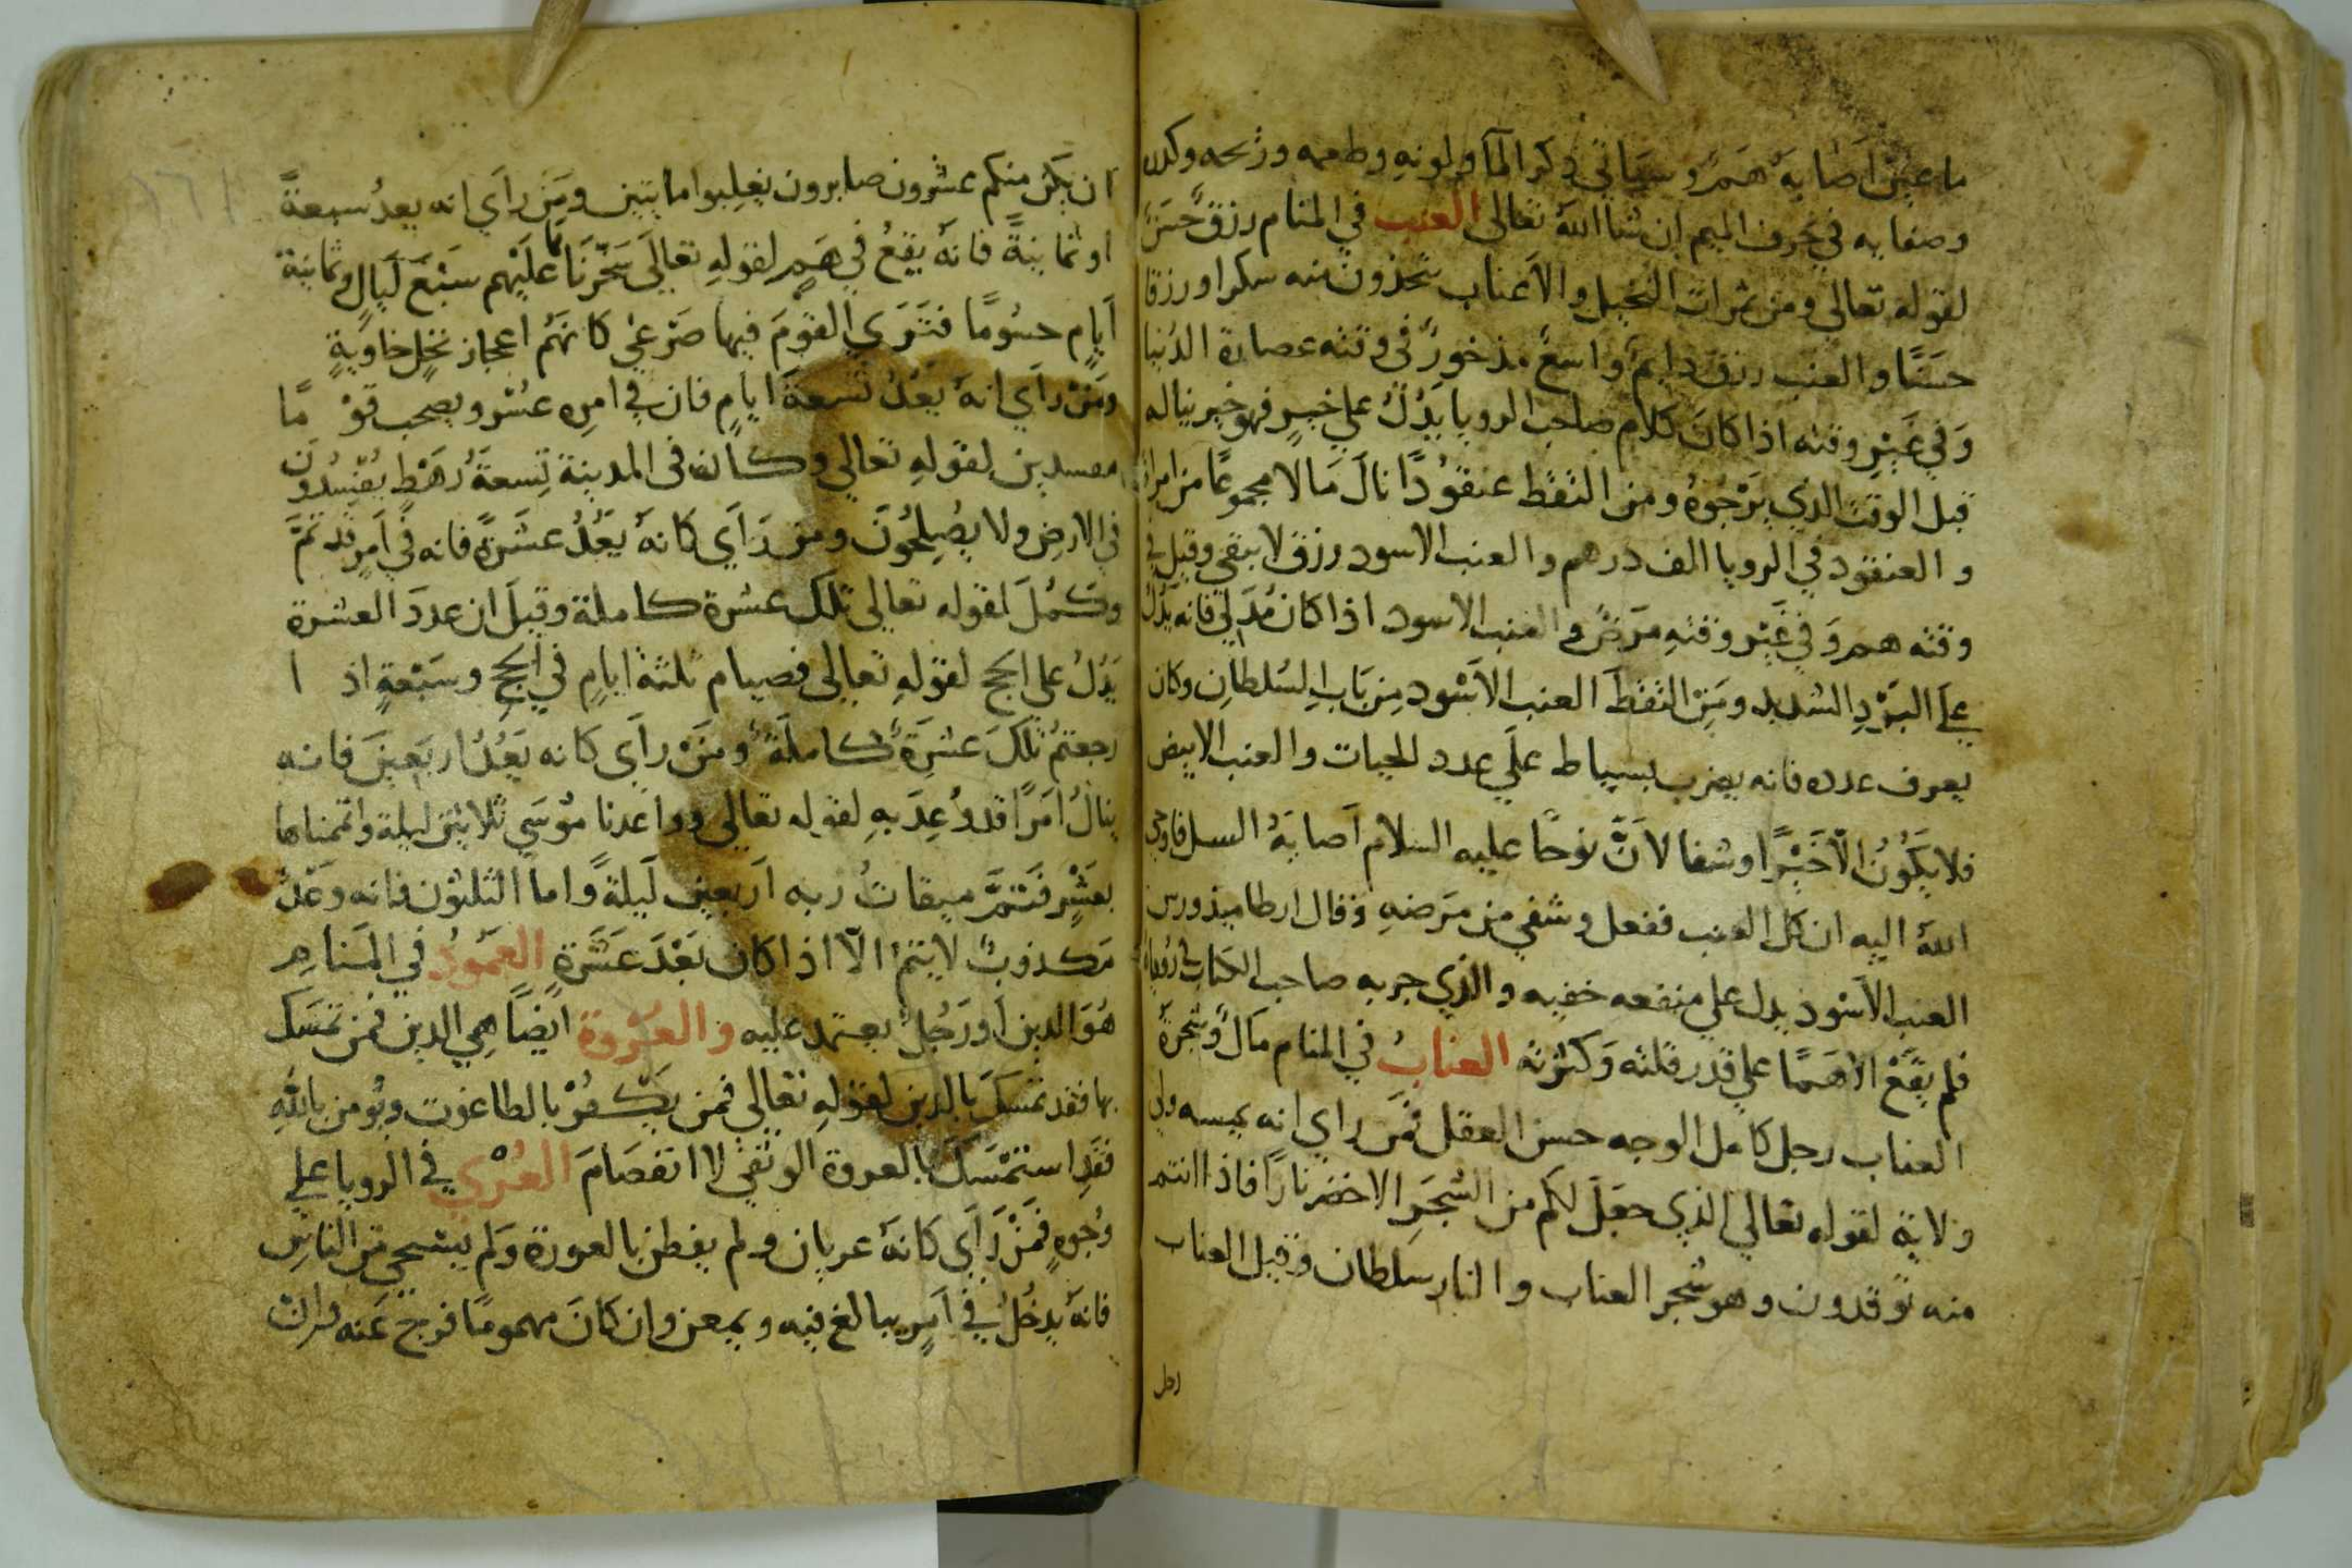 ما عين اصابه هم وسياتي ذكر الما ولونه وطعمه وريحه وكدره
وصفايه في حرف الميم ان شا الله تعالى العنب في المنام رزق حسن
لقوله تعالى ومن ثمرات النخيل والاعناب تتخذون منه سكرا ورزقا
حسنا والعنب رزق دايم واسع مذخور في وقته عصارة الدنيا
وفي غير وقته اذا كان كلام صاحب الرويا يدل علي خير فهو خير يناله
قبل الوقت الذي يرجوه ومن التقط عنقودا نال مالا مجموعا من امراة
والعنقود في الرويا الف درهم والعنب الاسود رزق لا يبقي وقيل في
وقته هم وفي غير وقته مرض والعنب الاسود اذا كان مدلي فانه يدل
علي البرد الشديد ومن التقط العنب الاسود من باب السلطان وكان
يعرف عدده فانه يضرب بسياط علي عدد الحبات والعنب الابيض
فلا يكون الا خيرا وشفا لان نوحا عليه السلام اصابه السل فاوحي
الله اليه ان كل العنب ففعل وشفي من مرضه وقال ارطاميدورس
العنب الاسود يدل علي منفعه خفيه والذي جربه صاحب الكتاب
فلم يقع الا هما علي قدر قلته وكثرته العناب في المنام مال وشجرة
العناب رجل كامل الوجه حسن العقل فمن راي انه يمسه ولي
ولاية لقوله تعالي الذي جعل لكم من الشجر الاخضر نارا فاذا انتم
منه توقدون وهو شجر العناب والنار سلطان وقيل العناب
رجل
ان يكن منكم عشرون صابرون يغلبوا مايتين ومن راي انه يعد سبعة
او ثمانية فانه يقع في هم لقوله تعالي سخرنا عليهم سبع ليال وثمانية
ايام حسوما فتري القوم فيها صرعي كانهم اعجاز نخل خاوية
ومن راي انه يعد تسعة ايام فان في امره عشر ويصحب قو ما
مفسدين لقوله تعالي وكان في المدينة تسعة رهط يفسدون
في الارض ولا يصلحون ومن راي كانه يعد عشرة فانه في امر قد تم
وكمل لقوله تعالي تلك عشرة كاملة وقيل ان عدد العشرة
يدل على الحج لقوله تعالى فصيام ثلثة ايام في الحج وسبعة اذ ا
رجعتم تلك عشرة كاملة ومن راي كانه يعد اربعين فانه
ينال امرا قد وعد به لقوله تعالي وواعدنا موسي ثلاثين ليلة واتممناها
بعشر فتم ميقات ربه اربعين ليلة واما الثلثون فانه وعد
مكذوب لا يتم الا اذا كان بعد عشرة العمود في المنام
هو الدين او رجل يعتمد عليه والعروة ايضا هي الدين فمن تمسك
بها فقد تمسك بالدين لقوله تعالي فمن يكفر بالطاغوت ويومن بالله
فقد استمسك بالعروة الوثقي لا انفصام العري في الرويا علي
وجوه فمن راي كانه عريان ولم يفطن بالعورة ولم يستحي من الناس
فانه يدخل في امر يبالغ فيه ويمعن وان كان مهموما فرج عنه وان